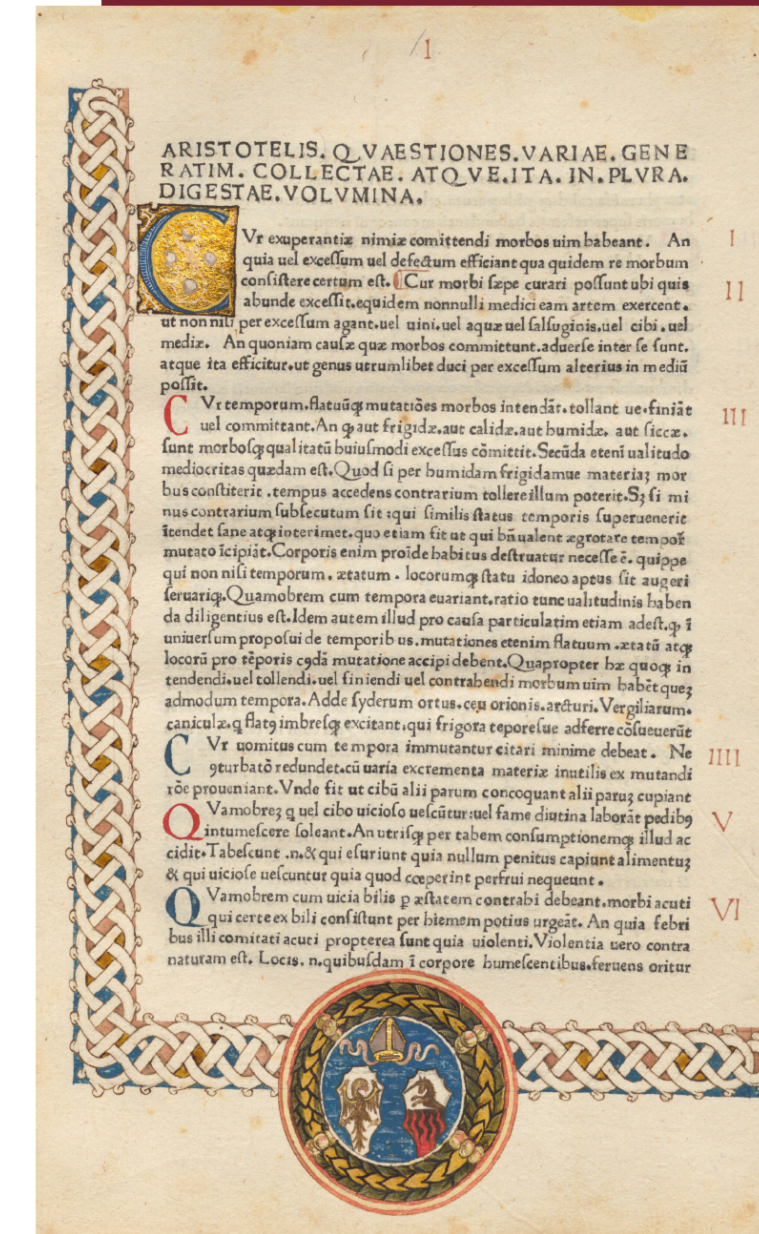 I
ARISTOTELIS. QVAESTIONES. VARIAE. GENE
RATIM. COLLECTAE. ATQVE. ITA. IN. PLVRA.
DIGESTAE. VOLVMINA.
CVr exuperantiæ nimiæ comittendi morbos uim habeant. An I
quia uel excessum uel defectum efficiant qua quidem re morbum
consistere certum est. ¶Cur morbi sæpe curari possunt ubi quis II
abunde excessit. equidem nonnulli medici eam artem exercent.
ut non nisi per excessum agant. uel uini. uel aquæ uel salsuginis. uel cibi. uel
mediæ. An quoniam causæ quæ morbos committunt. aduerse inter se sunt.
atque ita efficitur. ut genus utrumlibet duci per excessum alterius in mediũ
possit.
CVr temporum. flatuũqꝫ mutatiões morbos intendãt. tollant ue. finiãt III
uel committant. An qꝫ aut frigidæ. aut calidæ. aut humidæ. aut siccæ.
sunt morbosqꝫ qualitatũ huiusmodi excessus cõmittit. Secũda etenĩ ualitudo
mediocritas quædam est. Quod si per humidam frigidamue materiaꝫ mor
bus constiterit. tempus accedens contrarium tollere illum poterit. Sꝫ si mi
nus contrarium subsecutum sit: qui similis status temporis superuenerit
ĩtendet sane atqꝫ interimet. quo etiam fit ut qui bñ ualent ægrotare tempoꝝ
mutato ĩcipiãt. Corporis enim proĩde habitus destruatur necesse ẽ. quippe
qui non nisi temporum. ætatum. locorumqꝫ statu idoneo aptus sit augeri
seruariqꝫ. Quamobrem cum tempora euariant. ratio tunc ualitudinis haben
da diligentius est. Idem autem illud pro causa particulatim etiam adest. qꝫ ĩ
uniuersum proposui de temporibus. mutationes etenim flatuum. ætatũ atqꝫ
locorũ pro tẽporis cꝯdã mutatione accipi debent. Quapropter hæ quoqꝫ in
tendendi. uel tollendi. uel finiendi uel contrahendi morbum uim habẽt queꝫ
admodum tempora. Adde syderum ortus. ceu orionis. arcturi. Vergiliarum.
caniculæ. q flatꝯ imbresqꝫ excitant. qui frigora teporesue adferre cõsueuerũt
CVr uomitus cum tempora immutantur citari minime debeat. Ne IIII
ꝯturbatõ redundet. cũ uaria excrementa materiæ inutilis ex mutandi
rõe proueniant. Vnde fit ut cibũ alii parum concoquant alii paruꝫ cupiant
QVamobreꝫ q uel cibo uicioso uescũtur: uel fame diutina laborãt pedibꝯ V
intumescere soleant. An utrisqꝫ per tabem consumptionemqꝫ illud ac
cidit. Tabescunt .n. & qui esuriunt quia nullum penitus capiunt alimentuꝫ
& qui uiciose uescuntur quia quod cœperint perfrui nequeunt.
QVamobrem cum uicia bilis ꝑ æstatem contrahi debeant. morbi acuti VI
qui certe ex bili consistunt per hiemem potius urgeãt. An quia febri
bus illi comitati acuti propterea sunt quia uiolenti. Violentia uero contra
naturam est. Locis. n. quibusdam ĩ corpore humescentibus. feruens oritur